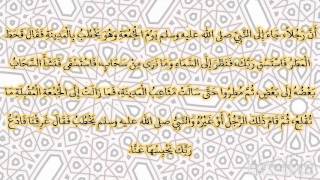 أَنَّ رَجُلاً، جَاءَ إِلَى النَّبِيِّ صلى الله عليه وسلم يَوْمَ الْجُمُعَةِ وَهْوَ يَخْطُبُ بِالْمَدِينَةِ فَقَالَ قَحَطَ
الْمَطَرُ فَاسْتَسْقِ رَبَّكَ، فَنَظَرَ إِلَى السَّمَاءِ وَمَا نَرَى مِنْ سَحَابٍ، فَاسْتَسْقَى فَنَشَأَ السَّحَابُ
بَعْضُهُ إِلَى بَعْضٍ، ثُمَّ مُطِرُوا حَتَّى سَالَتْ مَثَاعِبُ الْمَدِينَةِ، فَمَا زَالَتْ إِلَى الْجُمُعَةِ الْمُقْبِلَةِ مَا
تُقْلِعُ، ثُمَّ قَامَ ذَلِكَ الرَّجُلُ أَوْ غَيْرُهُ وَالنَّبِيُّ صلى الله عليه وسلم يَخْطُبُ فَقَالَ غَرِقْنَا فَادْعُ
رَبَّكَ يَحْبِسْهَا عَنَّا‏.‏